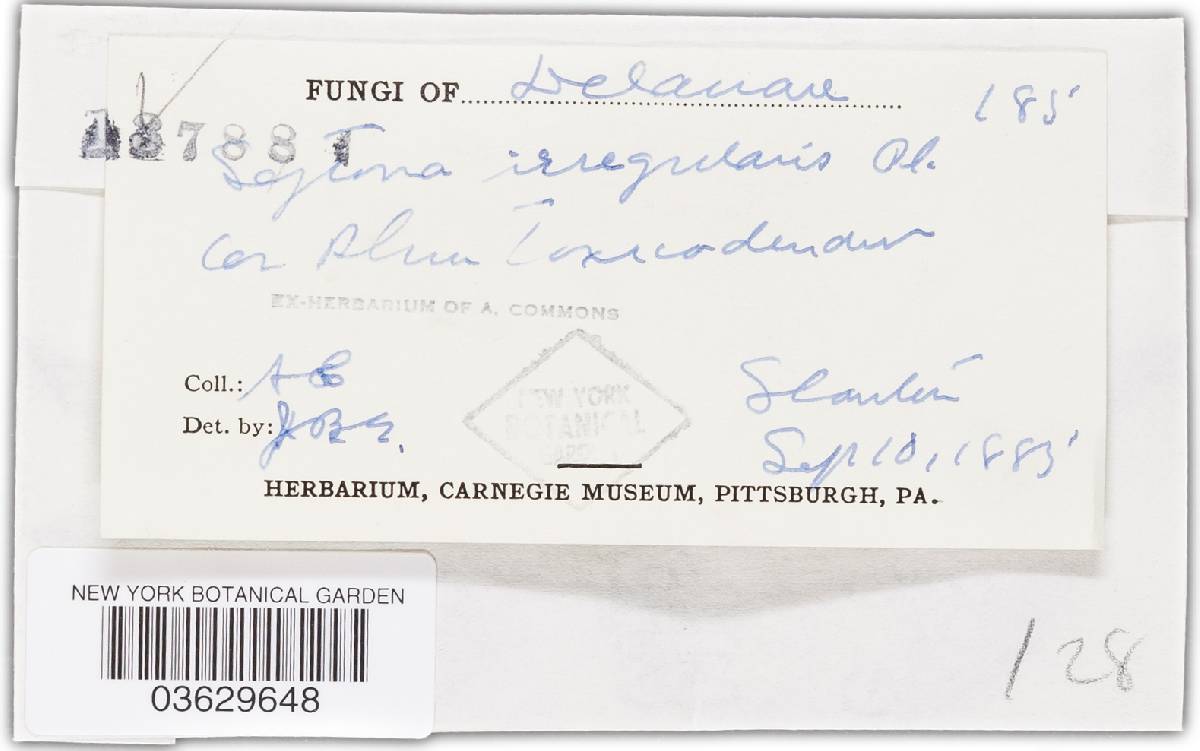 FUNGI OF Delaware 185
137881
Septoria irregularis Pk.
on Rhus Toxicodendron
EX-HERBARIUM OF A. COMMONS
Coll.: A C
Det. by: J B E.
NEW YORK
BOTANICAL
GARDEN
Stanton
Sep 10, 1885
HERBARIUM, CARNEGIE MUSEUM, PITTSBURGH, PA.
NEW YORK BOTANICAL GARDEN
03629648
128